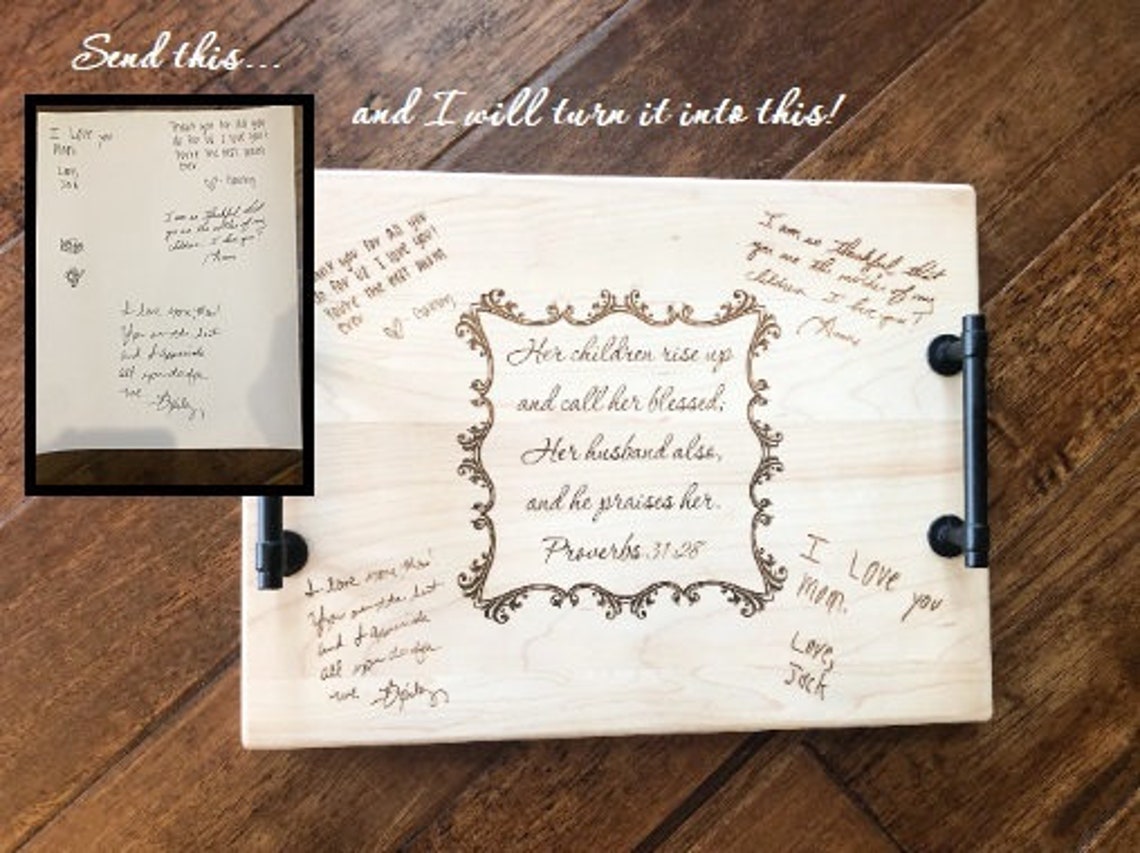 Send this...
and I will turn it into this!
I Love you
Mom.
Love,
Jack
Thank you for all you
do for us I love you!
You're the best mom
ever
I am so thankful that
you are the mother of my
children. I love you!
I love you
You are the best
and I appreciate
all you do for
me
Thank you for all you
do for us I love you!
You're the best mom
ever
I am so thankful that
you are the mother of my
children I love you!
Her children rise up
and call her blessed;
Her husband also,
and he praises her.
Proverbs 31:28
I love you
You are the best
and I appreciate
all you do for
me
I Love you
Mom.
Love,
Jack